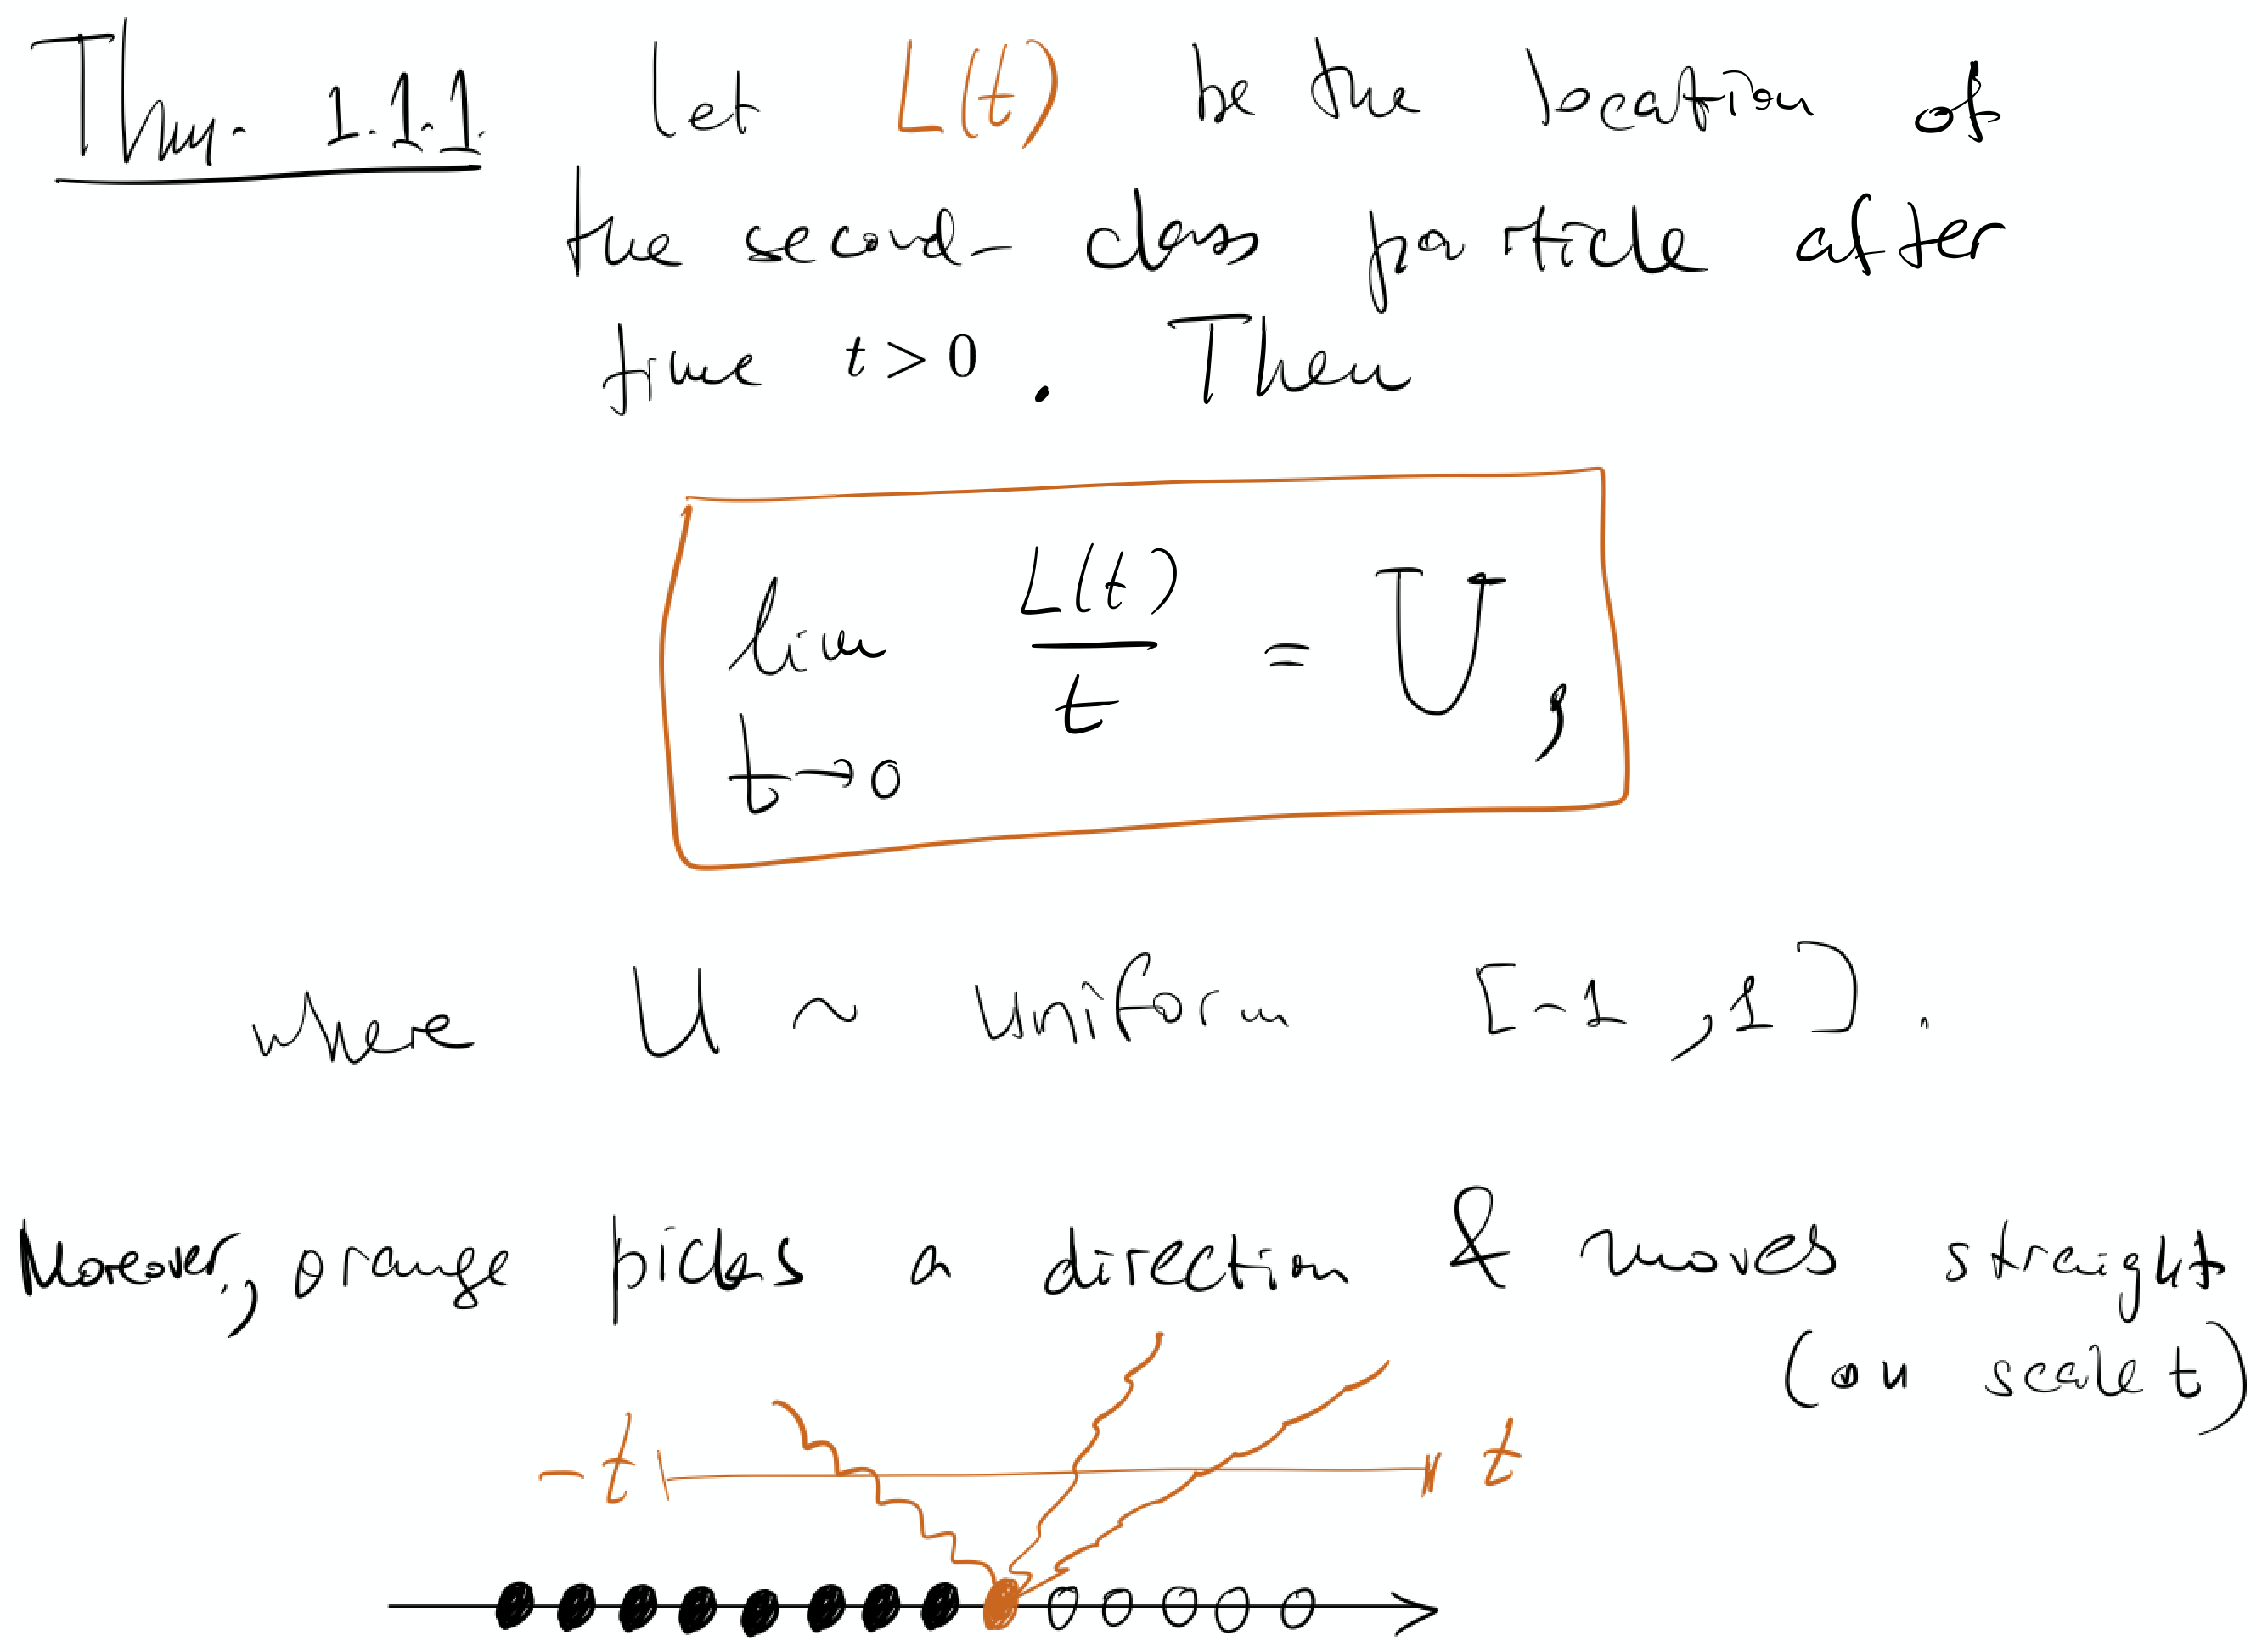 Thm. 1.1.1. Let L(t) be the location of
the second-class particle after
time t > 0. Then
lim L(t)/t = U,
t→0
where U ~ Uniform [-1, 1].
Moreover, orange picks a direction & moves straight
(on scale t)
-t t